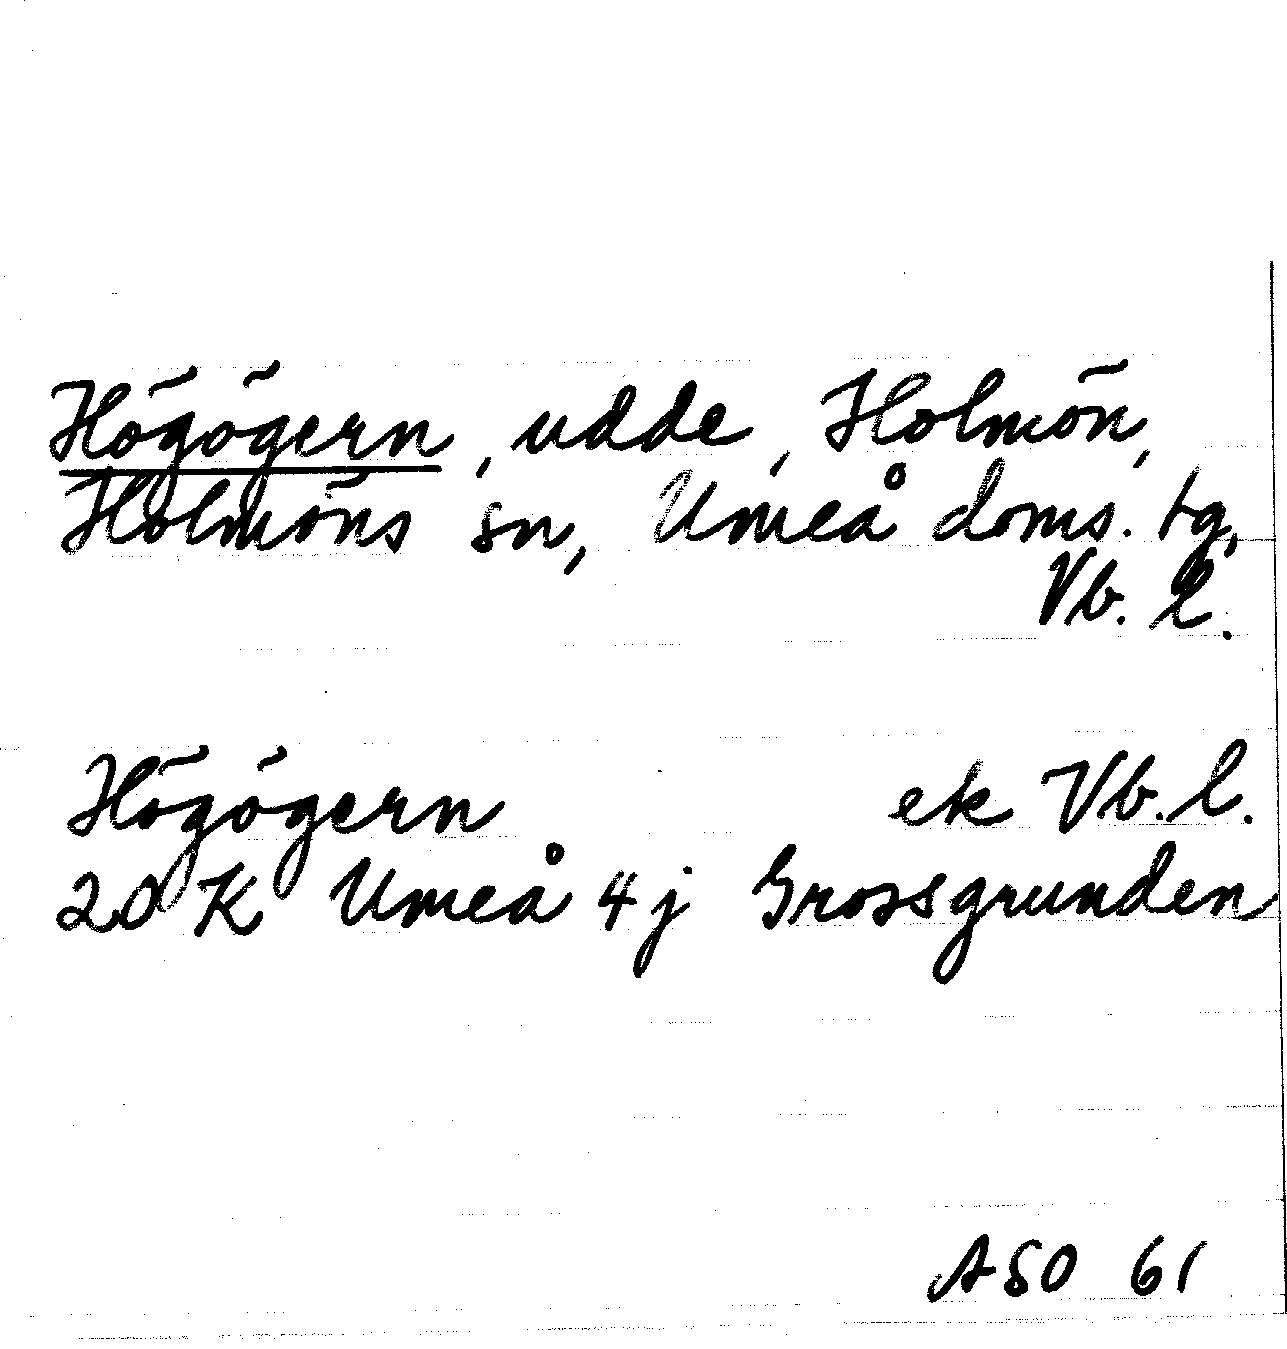 Högögern, udde, Holmön,
Holmöns sn, Umeå doms. tg,
Vb. l.
Högögern ek Vb. l.
20 K Umeå 4 j Grossgrunden
ASO 61